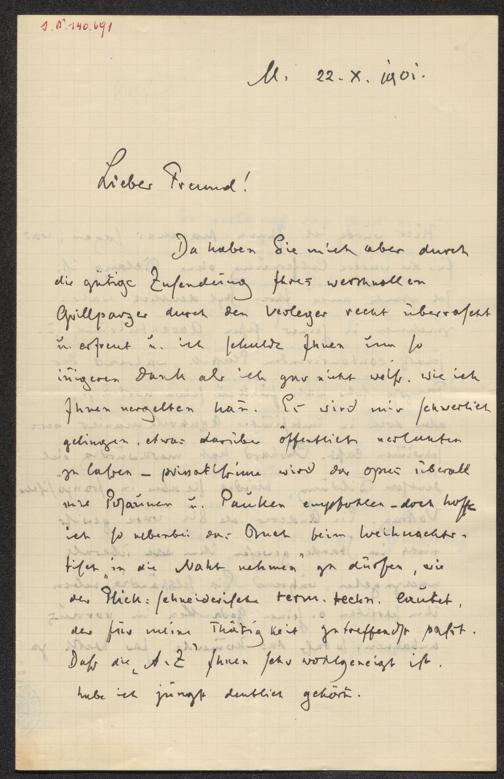 J. N. 140.691
M. 22. X. 1901.
Lieber Freund!
Da haben Sie mich aber durch
die gütige Zusendung Ihres wertvollen
Grillparzer durch den Verleger recht überrascht
u. erfreut u. ich schulde Ihnen um so
innigeren Dank als ich gar nicht weiß, wie ich
Ihnen vergelten kan. Es wird mir schwerlich
gelingen, etwas darüber öffentlich verlauten
zu laßen – privatissime wird das opus überall
mit Posaunen u. Pauken empfohlen – doch hoffe
ich so nebenbei das Buch beim Weihnachts-
tisch „in die Naht nehmen“ zu dürfen, wie
der schneiderische term. techn. lautet,
der für meine Thätigkeit zutreffendst paßt.
Daß die „A. Z“ Ihnen sehr wohlgeneigt ist,
habe ich jüngst deutlich gehört.